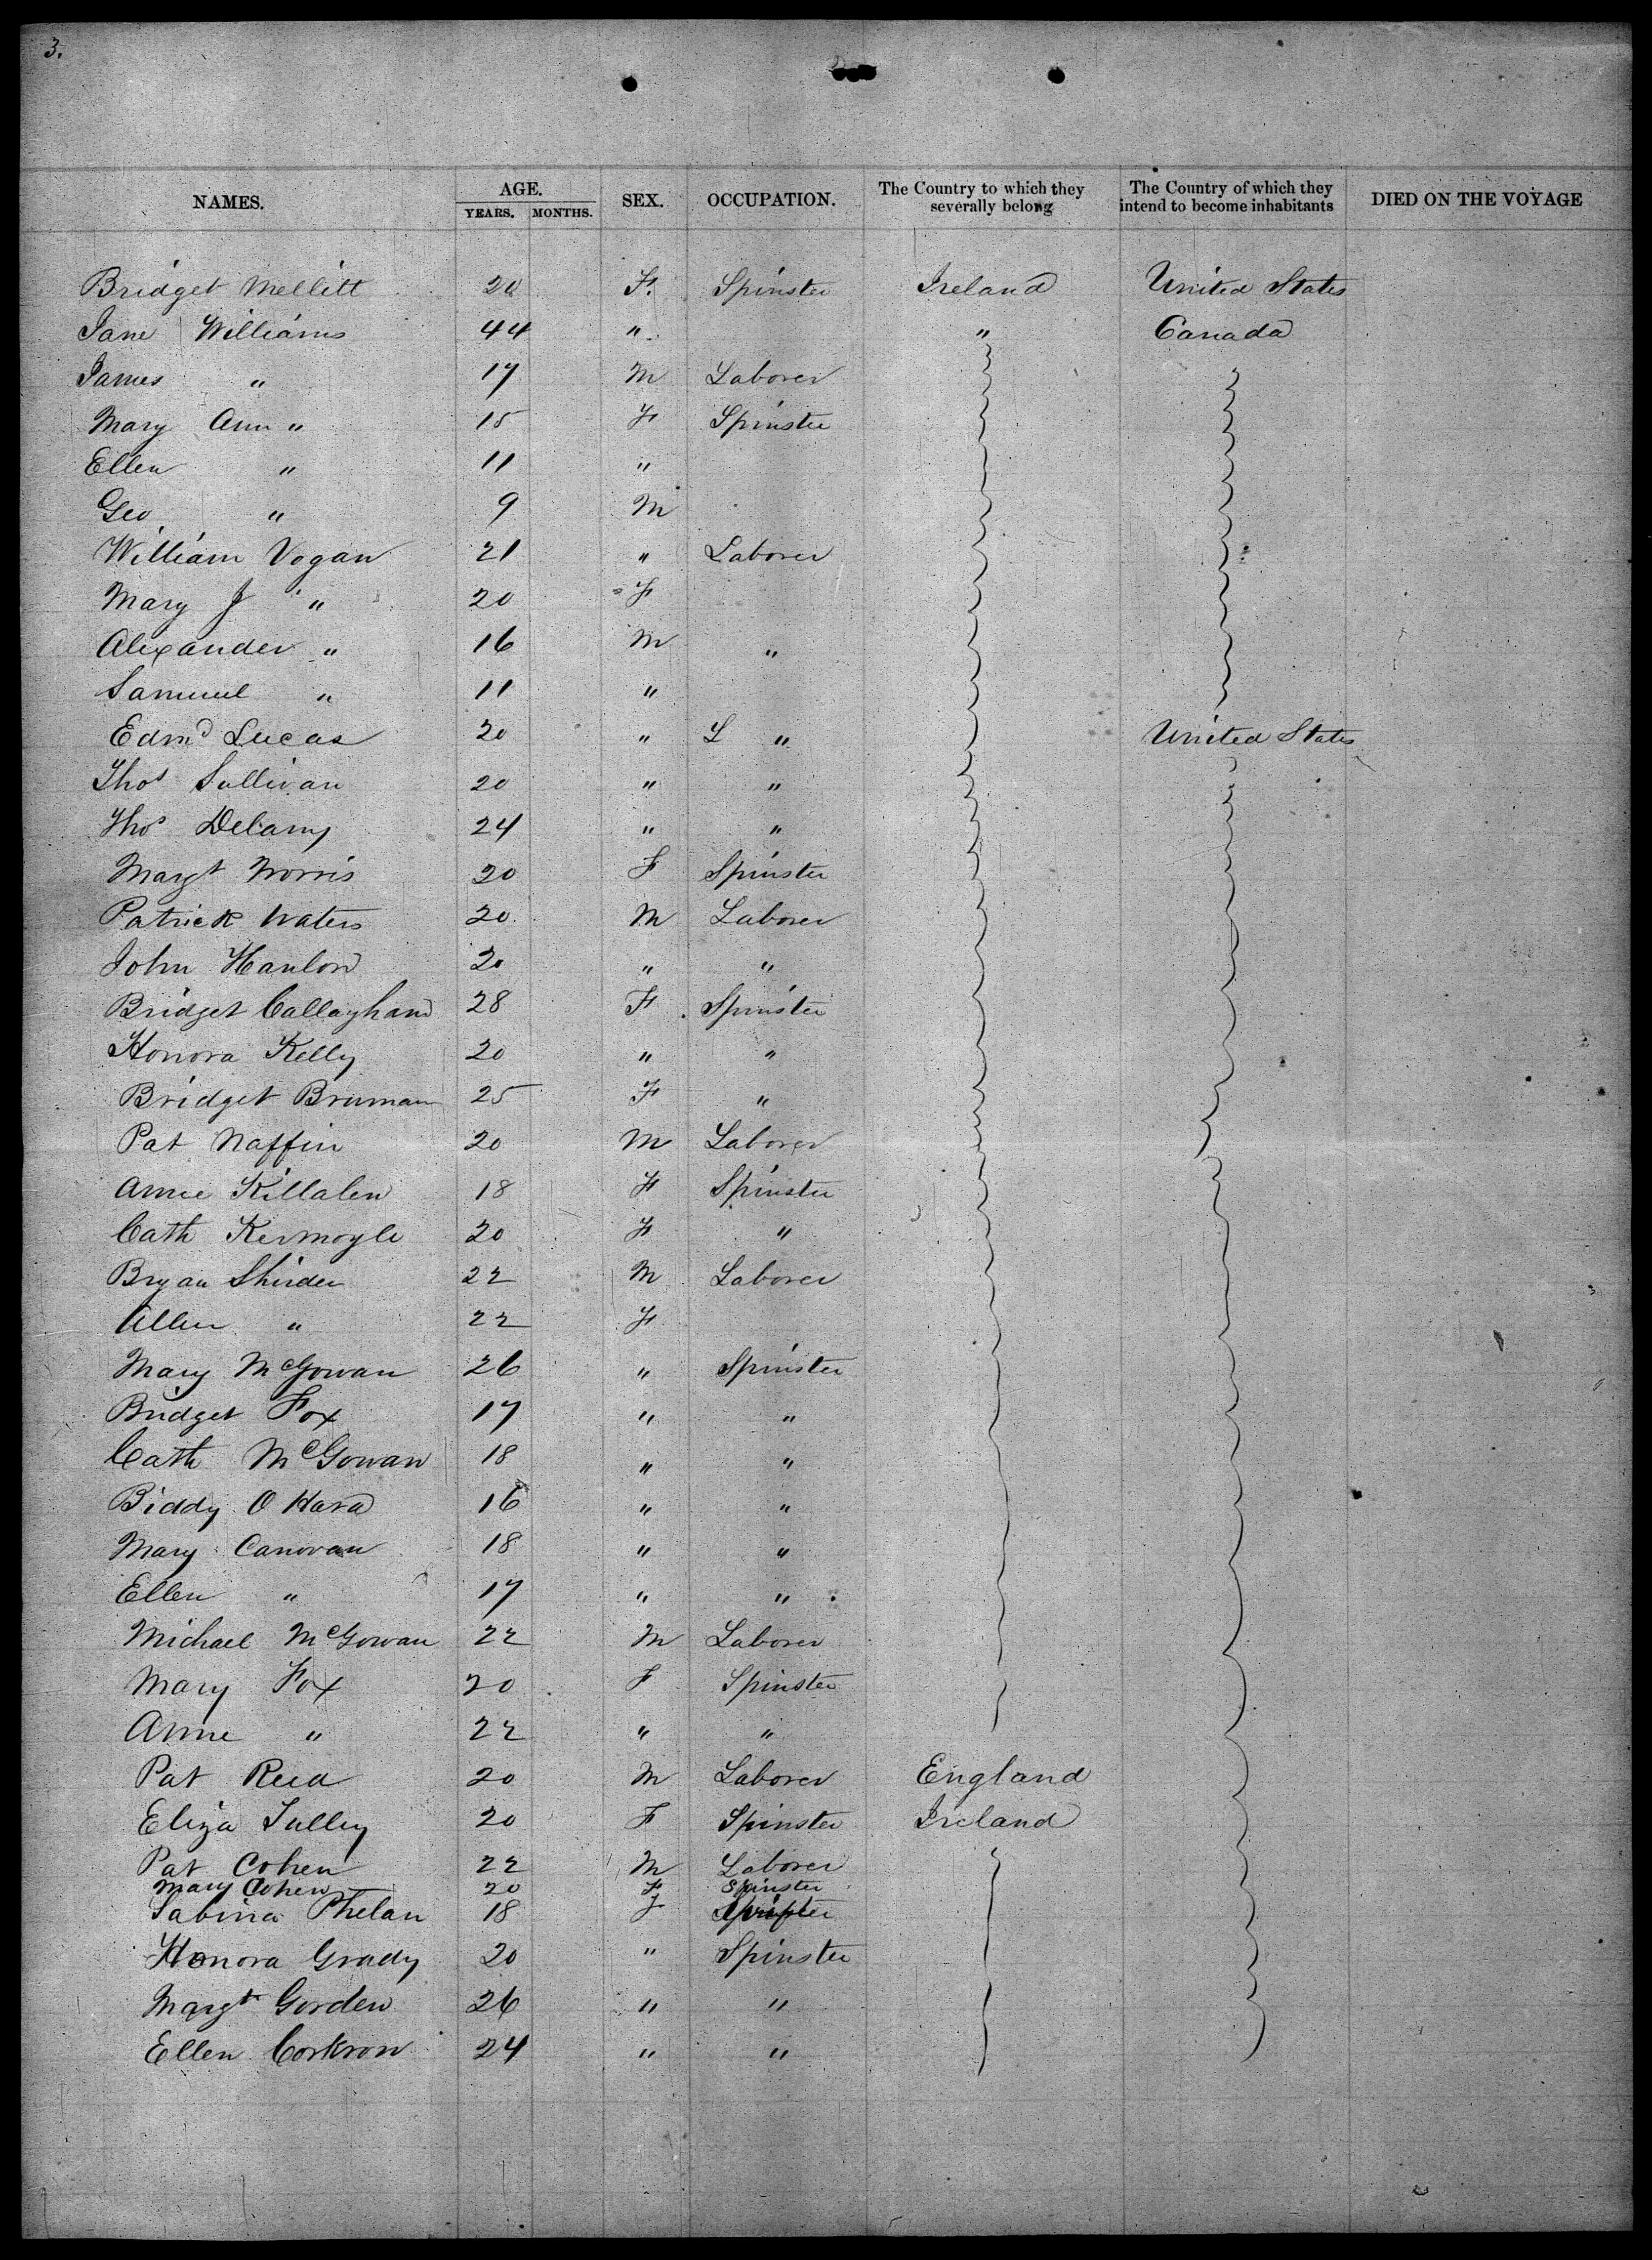 3.
NAMES. AGE. SEX. OCCUPATION. The Country to which they severally belong The Country of which they intend to become inhabitants DIED ON THE VOYAGE
YEARS. MONTHS.
Bridget Mellitt 20 F. Spinster Ireland United States
Jane Williams 44 " " Canada
James " 17 M Laborer
Mary Ann " 15 F Spinster
Ellen " 11 "
Geo " 9 M
William Vogan 21 " Laborer
Mary J " 20 F
Alexander " 16 M "
Samuel " 11 "
Edmd Lucas 20 " L " United States
Thos Sullivan 20 " "
Thos Delany 24 " "
Margt Norris 20 F Spinster
Patrick Waters 20 M Laborer
John Hanlon 20 " "
Bridget Callaghan 28 F Spinster
Honora Kelly 20 " "
Bridget Brennan 25 F "
Pat Naffin 20 M Laborer
Annie Killalen 18 F Spinster
Cath Kermoyle 20 F "
Bryan 22 M Laborer
Ellen " 22 F
Mary McGowan 26 " Spinster
Bridget Fox 17 " "
Cath McGowan 18 " "
Biddy O Hara 16 " "
Mary Canovan 18 " "
Ellen " 17 " "
Michael McGowan 22 M Laborer
Mary Fox 20 F Spinster
Anne " 22 " "
Pat Reid 20 M Laborer England
Eliza Tulley 20 F Spinster Ireland
Pat Cohen 22 M Laborer
Mary Cohen 20 F Spinster
Sabina Phelan 18 F Spinster
Honora Grady 20 " Spinster
Margt Gorden 26 " "
Ellen Corkron 24 " "